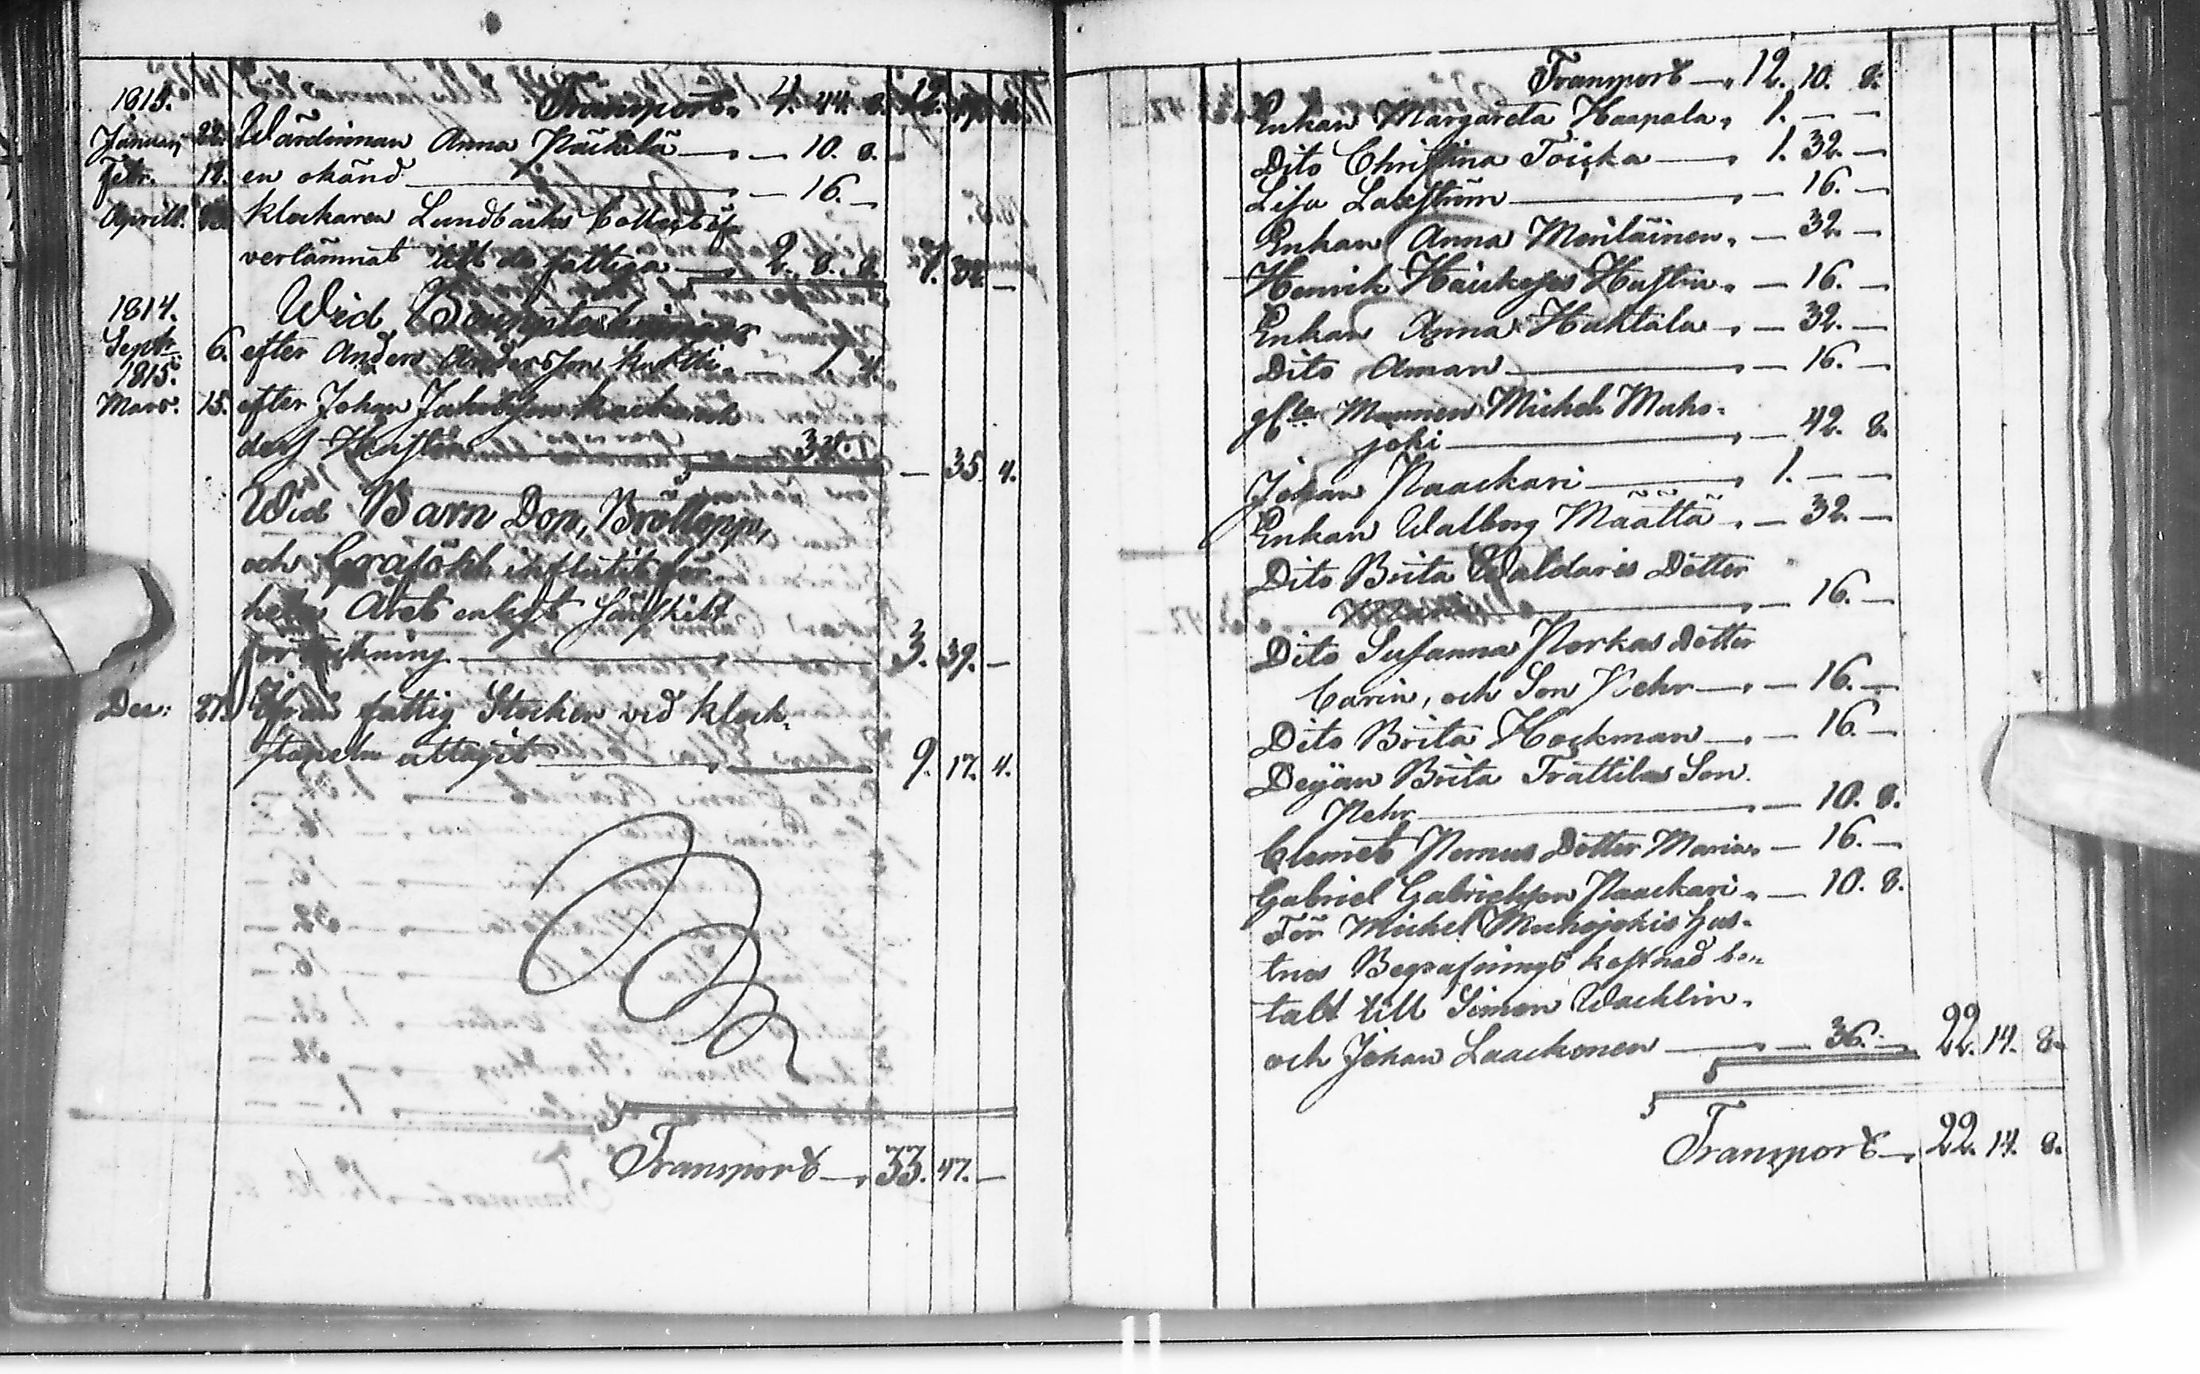 Transport. 4. 44. 8. 12.
1815.
Januarii 22. Wärdinnan Anna Päckilä — 10. 8.
Febr. 12. en okänd — 16. —
Aprill. klockaren Lundbäcks
verlämnat till de fattiga 2. 8. 8. 7. 32. —
1814. Wid
Septr. 6. efter Anders Andersson — 1. 4.
1815.
Mars. 15. efter Johan Jakobsson och
dess Hustru — 34. — 35. 4.
Wid Barn Dop, Bröllopp,
och Graföhl influtit för
hela Året enligt särskilt
förtekning — 3. 39. —
Dec: 27. Ifrån fattig Stocken vid klock-
stapeln uttagit — 9. 17. 4.
Transport 33. 47. —
Transport 12. 10. 8.
Enkan Margareta Haapala, 1. — —
Dito Christina Toicka — 1. 32. —
Lisa — 16. —
Enkan Anna Meriläinen, — 32. —
Henrik Hustru. — 16. —
Enkan Anna Huhtala — 32. —
Dito Åman — 16. —
Michel Muho-
joki — 42. 8.
Johan Paackari — 1. — —
Enkan Walborg Määttä — 32. —
Dito Brita Waldaris Dotter
— 16. —
Dito Susanna Porkas dotter
Carin, och Son Pehr — 16. —
Dito Brita Hockman — 16. —
Dejan Brita Trättiläs Son
Pehr — 10. 8.
Clemet Pernus Dotter Maria — 16. —
Gabriel Gabrielsson Paackari — 10. 8.
För Michel Muhojokis hus-
trus Begrafnings kostnad be-
talt till Simon Wacklin
och Johan Laackonen — 36. — 22. 14. 8.
Transport 22. 14. 8.